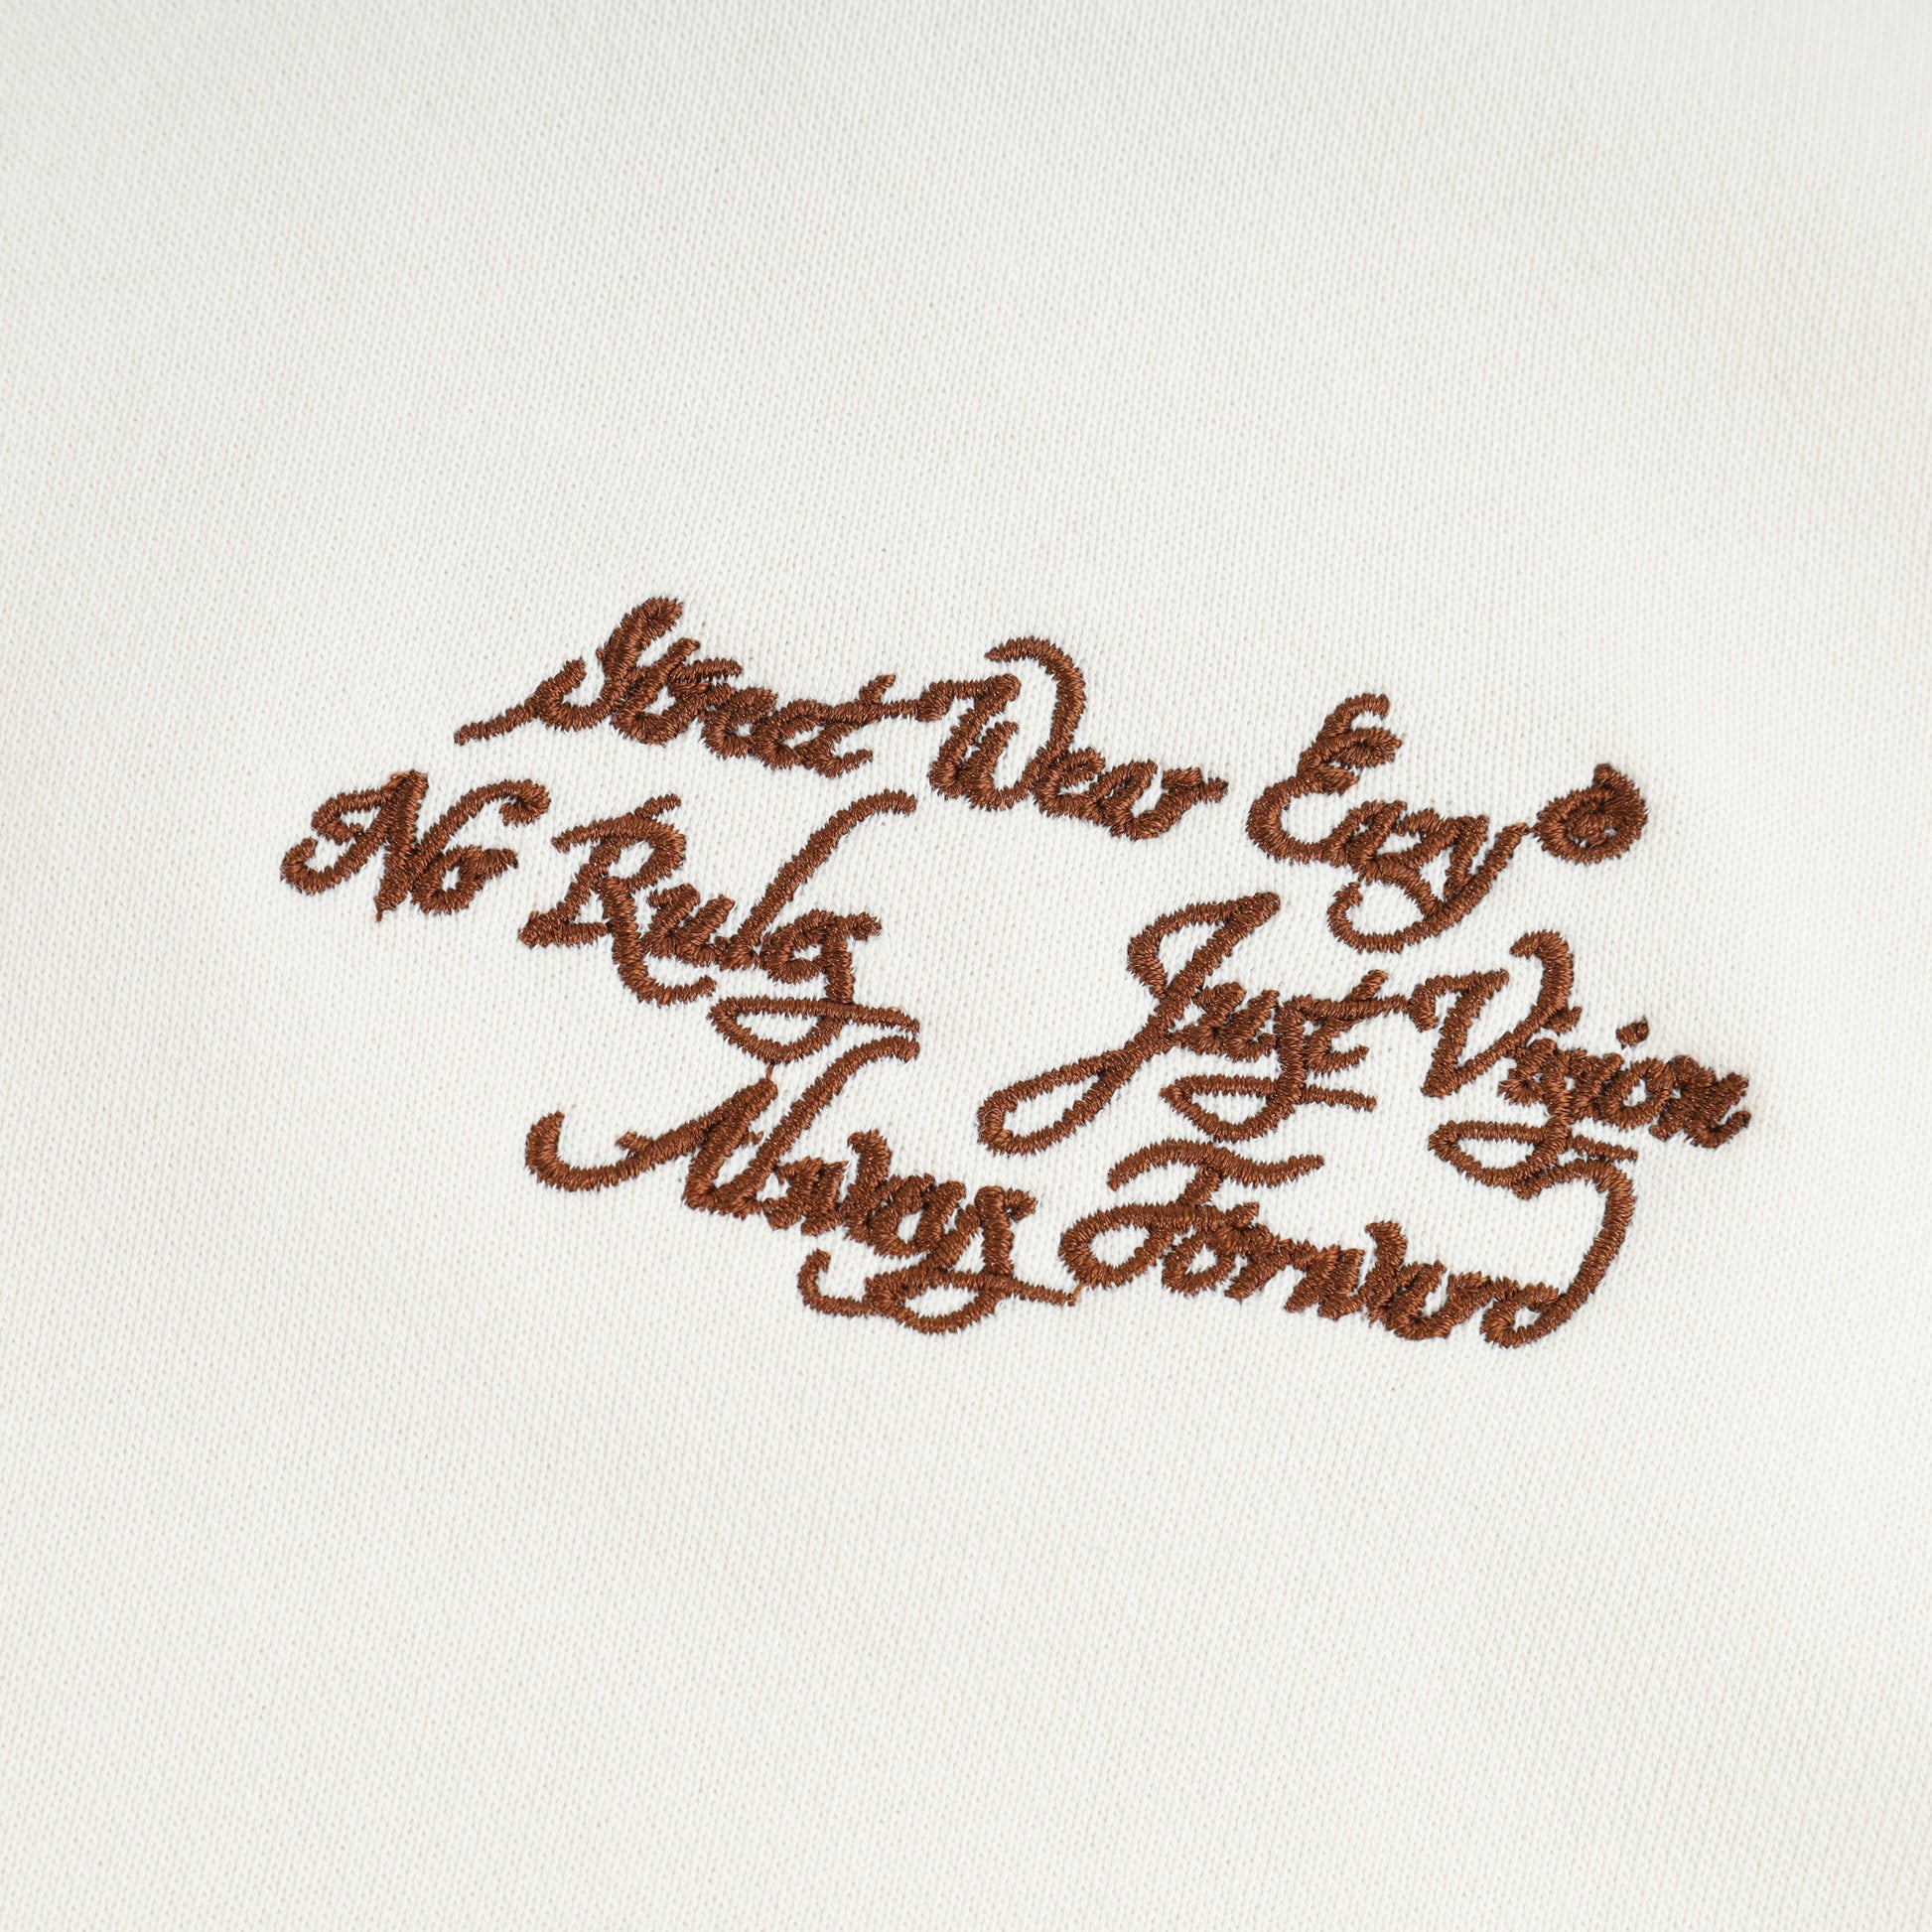 Street Wear Eazy ®
No Rules Just Vision
Always Forward